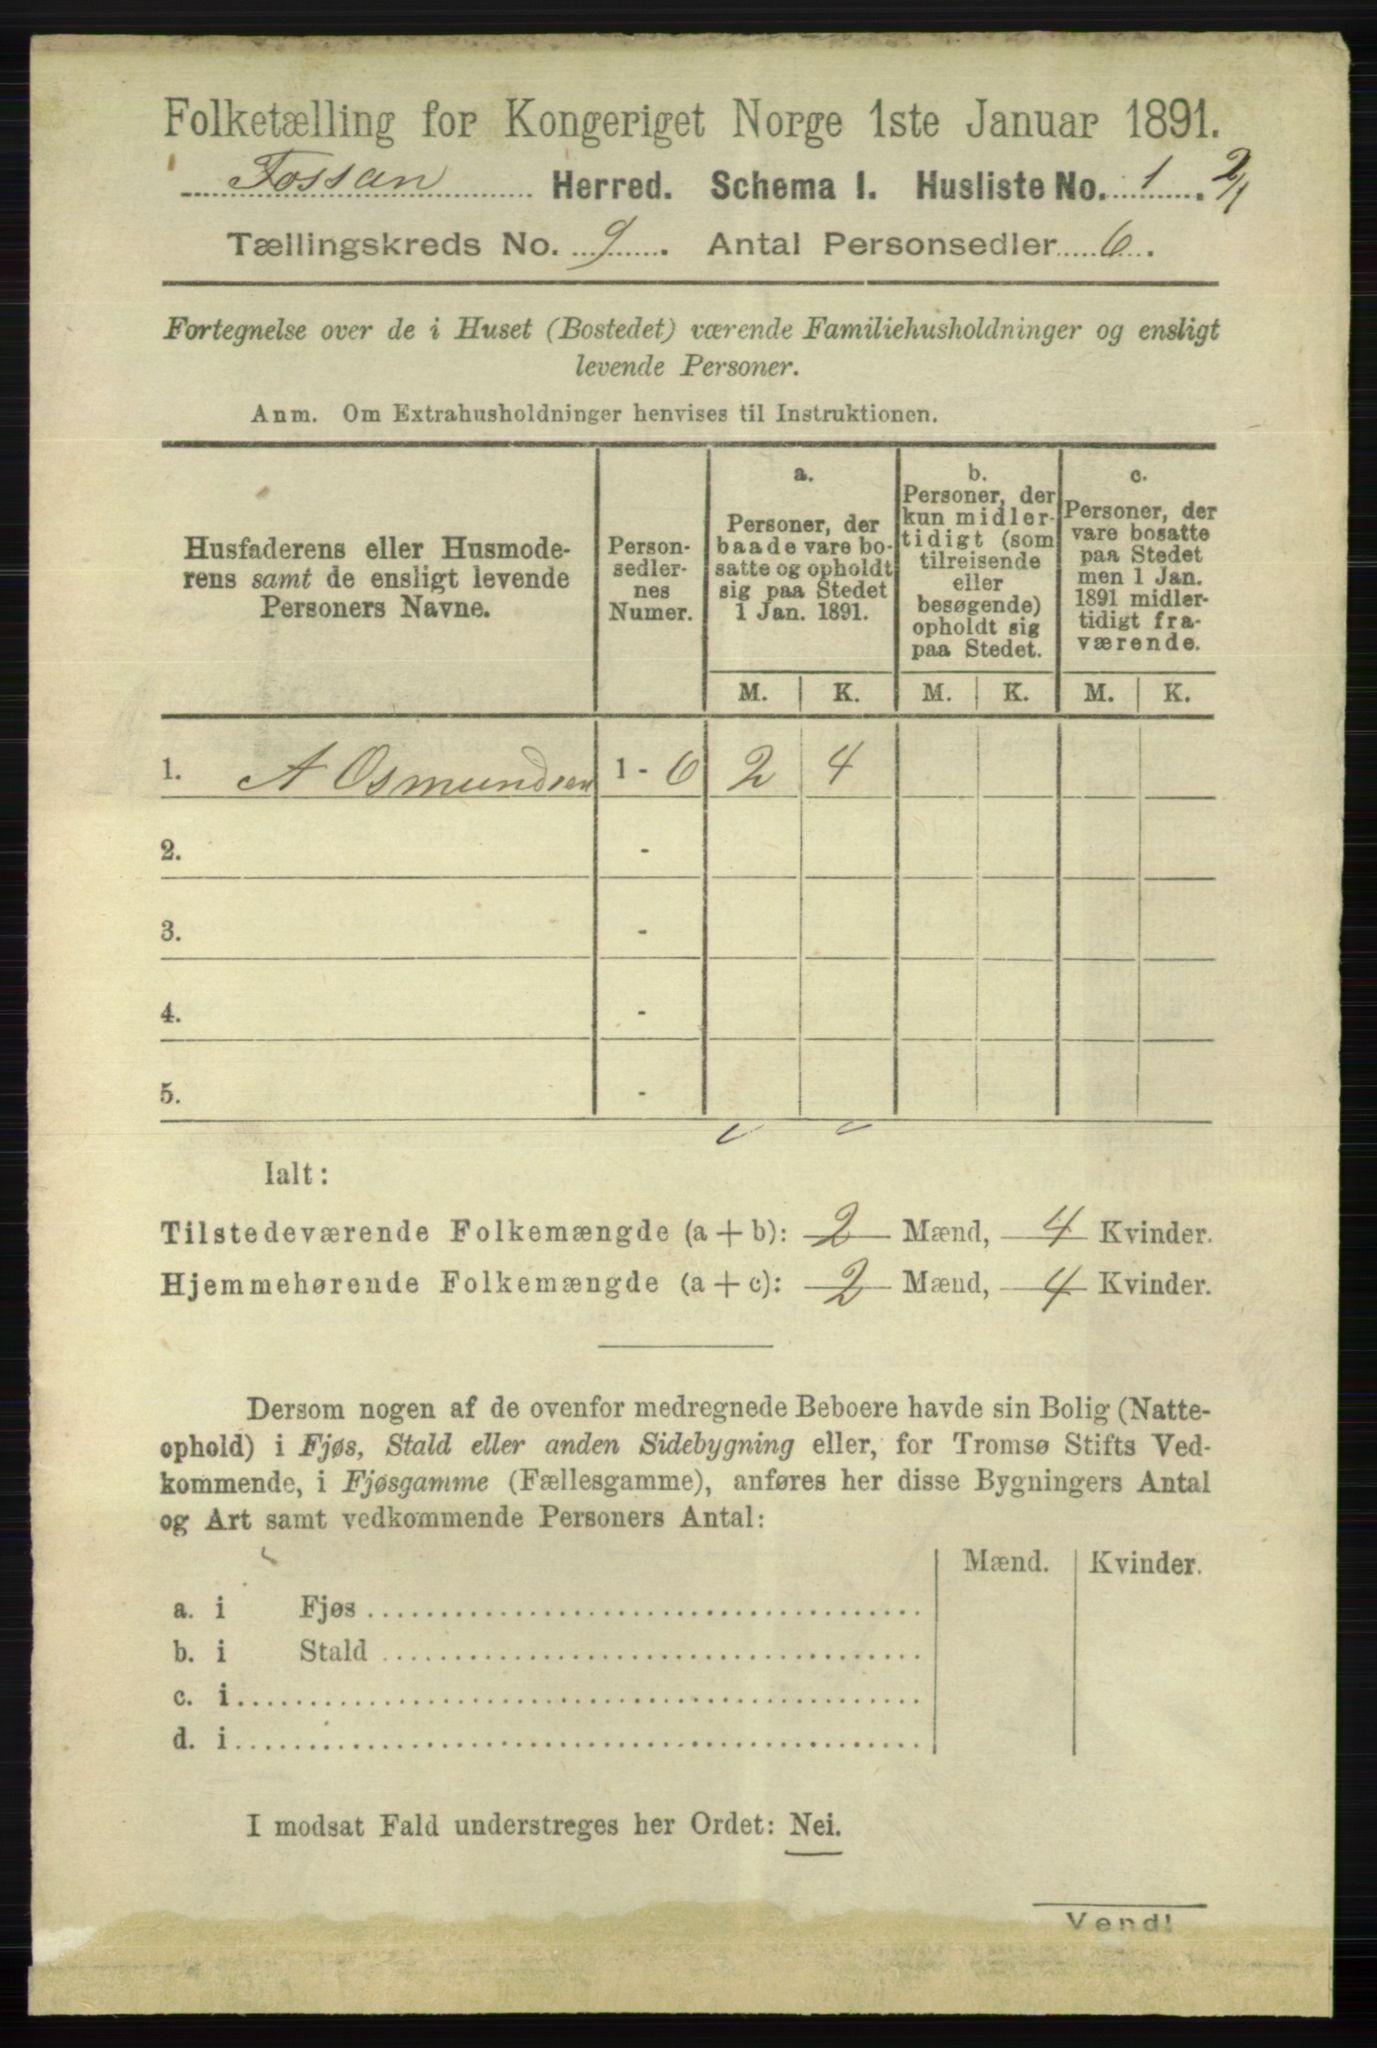 Folketælling for Kongeriget Norge 1ste Januar 1891.
Fossan Herred. Schema I. Husliste No. 1. 2/1
Tællingskreds No. 9. Antal Personsedler 6.
Fortegnelse over de i Huset (Bostedet) værende Familiehusholdninger og ensligt
levende Personer.
Anm. Om Extrahusholdninger henvises til Instruktionen.
Husfaderens eller Husmode-
rens samt de ensligt levende
Personers Navne.
Person-
sedler-
nes
Numer.
a.
Personer, der
baade vare bo-
satte og opholdt
sig paa Stedet
1 Jan. 1891.
b.
Personer, der
kun midler-
tidigt (som
tilreisende
eller
besøgende)
opholdt sig
paa Stedet.
c.
Personer, der
vare bosatte
paa Stedet
men 1 Jan.
1891 midler-
tidigt fra-
værende.
M. K. M. K. M. K.
1. A Osmundsen 1 - 6 2 4
2. -
3. -
4. -
5. -
Ialt:
Tilstedeværende Folkemængde (a + b): 2 Mænd, 4 Kvinder.
Hjemmehørende Folkemængde (a + c): 2 Mænd, 4 Kvinder.
Dersom nogen af de ovenfor medregnede Beboere havde sin Bolig (Natte-
ophold) i Fjøs, Stald eller anden Sidebygning eller, for Tromsø Stifts Ved-
kommende, i Fjøsgamme (Fællesgamme), anføres her disse Bygningers Antal
og Art samt vedkommende Personers Antal:
Mænd. Kvinder.
a. i Fjøs
b. i Stald
c. i
d. i
I modsat Fald understreges her Ordet: Nei.
Vend!